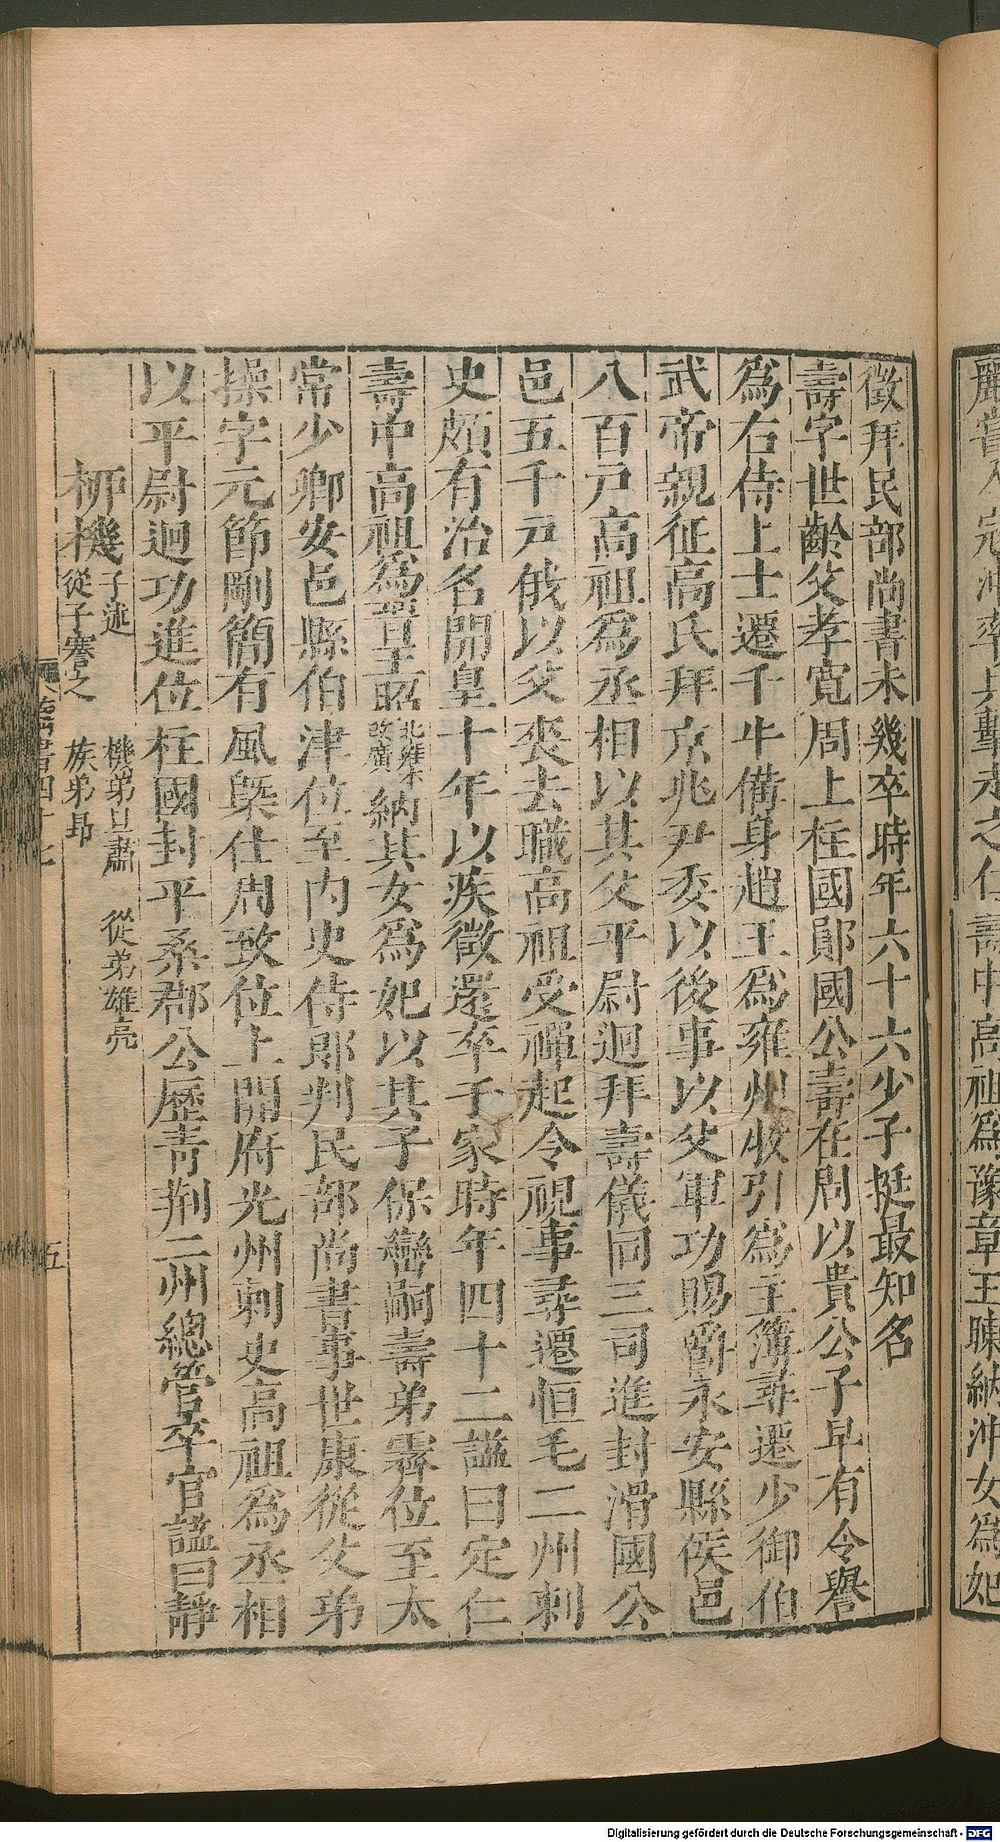 麗嘗入寇沖率兵擊走之仁壽中高祖爲豫章王暕納沖女爲妃
徵拜民部尚書未幾卒時年六十六少子挺最知名
壽字世齡父孝寬周上柱國鄖國公壽在周以貴公子早有令譽
爲右侍上士遷千牛備身趙王爲雍州牧引爲主簿尋遷少御伯
武帝親征高氏拜京兆尹委以後事以父軍功賜爵永安縣侯邑
八百戸高祖爲丞相以其父平尉迥拜壽儀同三司進封滑國公
邑五千戸俄以父喪去職高祖受禪起令視事尋遷恒毛二州刺
史頗有治名開皇十年以疾徵還卒于家時年四十二謚曰定仁
壽中高祖爲晉王昭北雍本改廣納其女爲妃以其子保巒嗣壽弟霽位至太
常少卿安邑縣伯津位至内史侍郎判民部尚書事世康從父弟
操字元節剛簡有風槩仕周致位上開府光州刺史高祖爲丞相
以平尉迥功進位柱國封平桑郡公歷青荆二州總管卒官謚曰靜
柳機子述 機弟旦肅 從弟雄亮
從子謇之 族弟昂
隋書四十七 五
Digitalisierung gefördert durch die Deutsche Forschungsgemeinschaft - DFG